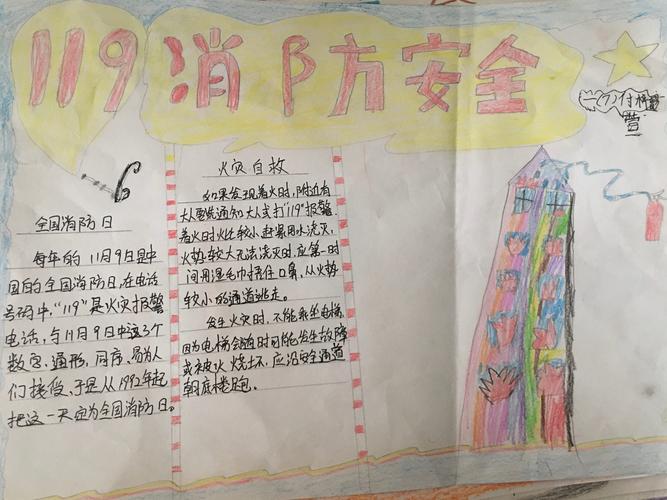 119消防安全
一(7)付梓萱
全国消防日
每年的11月9日是中
国的全国消防日,在电话
号码中,“119”是火灾报警
电话,与11月9日中这3个
数字、通形、同序、易为人
们接受,于是从1992年起
把这一天定为全国消防日。
火灾自救
如果发现着火时,附近有
大人要先通知大人或打“119”报警.
着火时火比较小赶紧用水浇灭,
火势较大无法浇灭时,应第一时
间用湿毛巾捂住口鼻,从火势
较小的通道逃走。
发生火灾时,不能乘坐电梯,
因为电梯会随时可能发生故障
或被火烧坏,应沿安全通道
朝底楼跑。